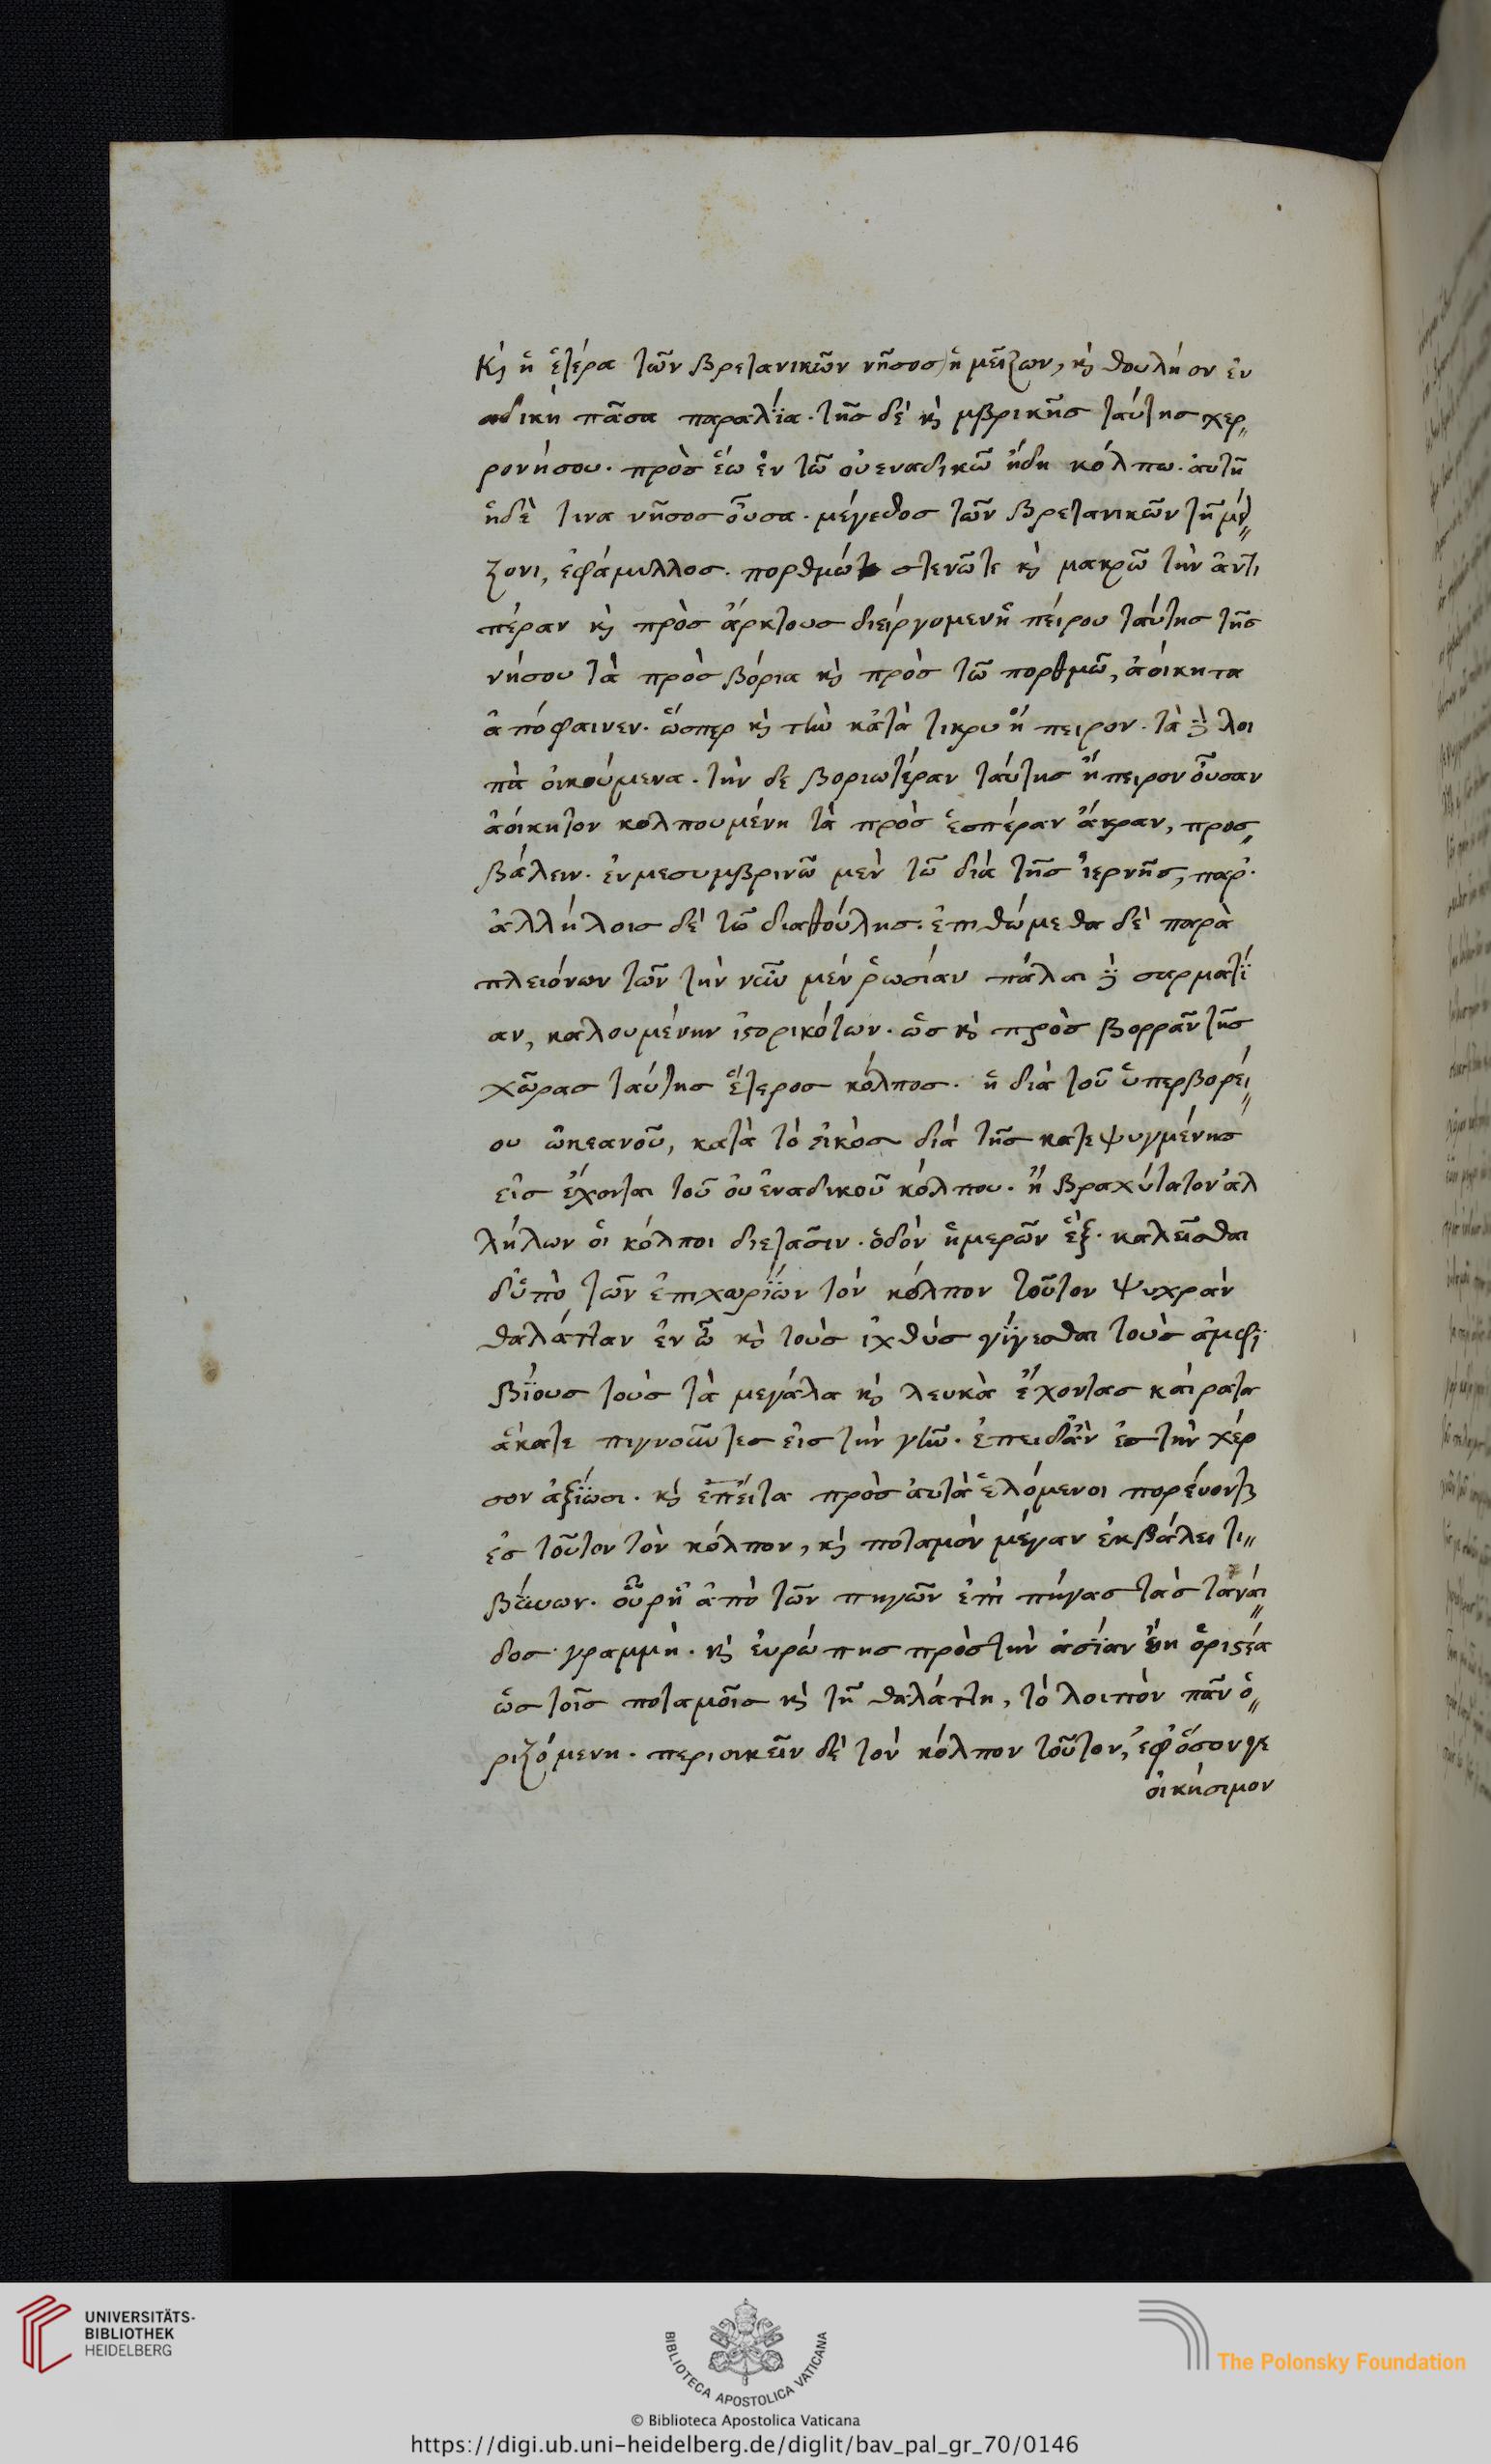 Κὶ ἡ ἑτέρα τῶν βρετανικῶν νῆσος) ἡ μεῖζων, κὶ θουλὴ ὀν ἐν
αδικὴ πᾶσα παραλΐα. τῆς δὲ κὶ μβρικῆς ταύτης χερ〃
ρονήσου. πρὸς ἕω ἐν τῶ οὐεναδικῶ ἤδη κόλπω. ἀυτῆ
ἡδὲ τινα νῆσος οὖσα. μέγεθος τῶν βρετανικῶν τῆ μεὶ〃
ζονι, ἐφάμιλλος. πορθμῶ στενῶτε κὶ μακρῶ τὴν ἀντι
πέραν κὶ πρὸς ἄρκτους διειργομενὴ πείρου ταύτης τῆς
νήσου τὰ πρὸς βόρια κὶ πρὸς τῶ πορθμῶ, ἀόικητα
ἀπόφαινεν. ὥσπερ κὶ τὴν κἀτὰ τικρυ ἤ πειρον. τὰ λοι
πὰ ὀικούμενα. τὴν δε βοριωτέραν ταύτης ἤπειρον οὖσαν
ἀόικητον κολπουμένη τὰ πρὸς ἑσπέραν ἄκραν, προσ〃
βάλειν. ἐν μεσυμβρινῶ μεν τῶ διὰ τῆς ἱερνῆς, παρ.
ἀλλήλοις δὲ τῶ διαθούλης. ἐπιθώμεθα δὲ παρὰ
πλειόνων τῶν τὴν νῦν μὲν ῥωσίαν πάλαι σαρματΐ
αν, καλουμένην ἱστορικότων. ὡς κὶ πρὸς βορρᾶν τῆς
χῶρας ταύτης ἕτερος κόλπος. ἢ διὰ τοῦ ὑπερβορεί〃
ου ὠκεανοῦ, κατὰ τὸ εἰκὸς διὰ τῆς κατεψυγμένης
εἰσ ἔχονται τοῦ ὀυ ἐναδικοῦ κόλπου. ἢ βραχύτατον ἀλ
λήλων ὁι κόλποι διετᾶσιν. ὁδὸν ἡμερῶν ἓξ. καλεῖσθαι
δ' ὑπὸ τῶν ἐπιχωρΐων τὸν κόλπον τοῦτον ψυχρὰν
θαλάτταν ἐν ὧ κὶ τοὺς ἰχθύς γΐγεσθαι τοὺς ἀμφι
βΐους τοὺς τὰ μεγάλα κὶ λευκὰ ἔχοντας κάιρατα
ἅκατε πιγνοῦντες εἰς τὴν γῆν. ἐπειδὰν ἐς τὴν χέρ
σον ἀξΐωσι. κὶ ἐπείτα πρὸς ἀυτὰ ἑλόμενοι πορέυοντ
ἐς τοῦτον τὸν κόλπον, κὶ ποταμὸν μέγαν ἐκβάλει τι〃
βύων. οὗρὴ ἀπὸ τῶν πηγῶν ἐπὶ πήγας τὰς τανάι〃
δος γραμμὴ. κὶ ἐυρώπης πρὸς τὴν ἀσΐαν ὁριστέα
ὡς τοῖς ποταμοῖς κὶ τῆ θαλάττη, τὸ λοιπὸν πᾶν ὁ〃
ριζόμενη. περιοικεῖν δὲ τὸν κόλπον τοῦτον, ἐφ' ὅσον γε
ὀικήσιμον
UNIVERSITÄTS-
BIBLIOTHEK
HEIDELBERG
BIBLIOTECA APOSTOLICA VATICANA
The Polonsky Foundation
© Biblioteca Apostolica Vaticana
https://digi.ub.uni-heidelberg.de/diglit/bav_pal_gr_70/0146